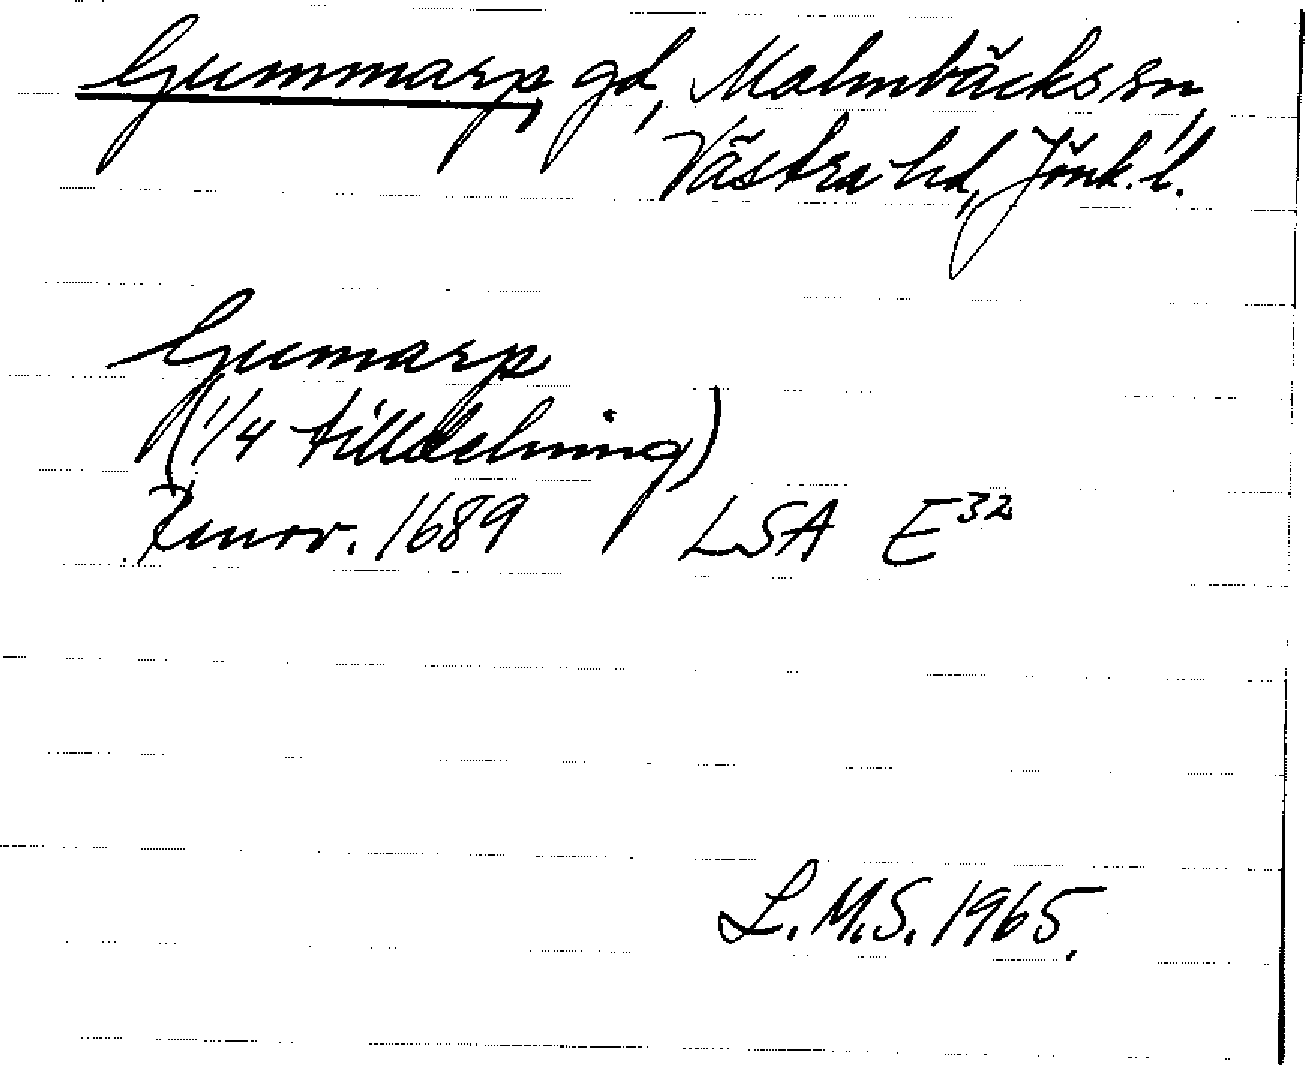 Gummarp, gd, Malmbäcks sn,
Västra hd, Jönk. l.
Gumarp
(1/4 tilldelning)
Renov. 1689 LSA E32
L.M.S. 1965.